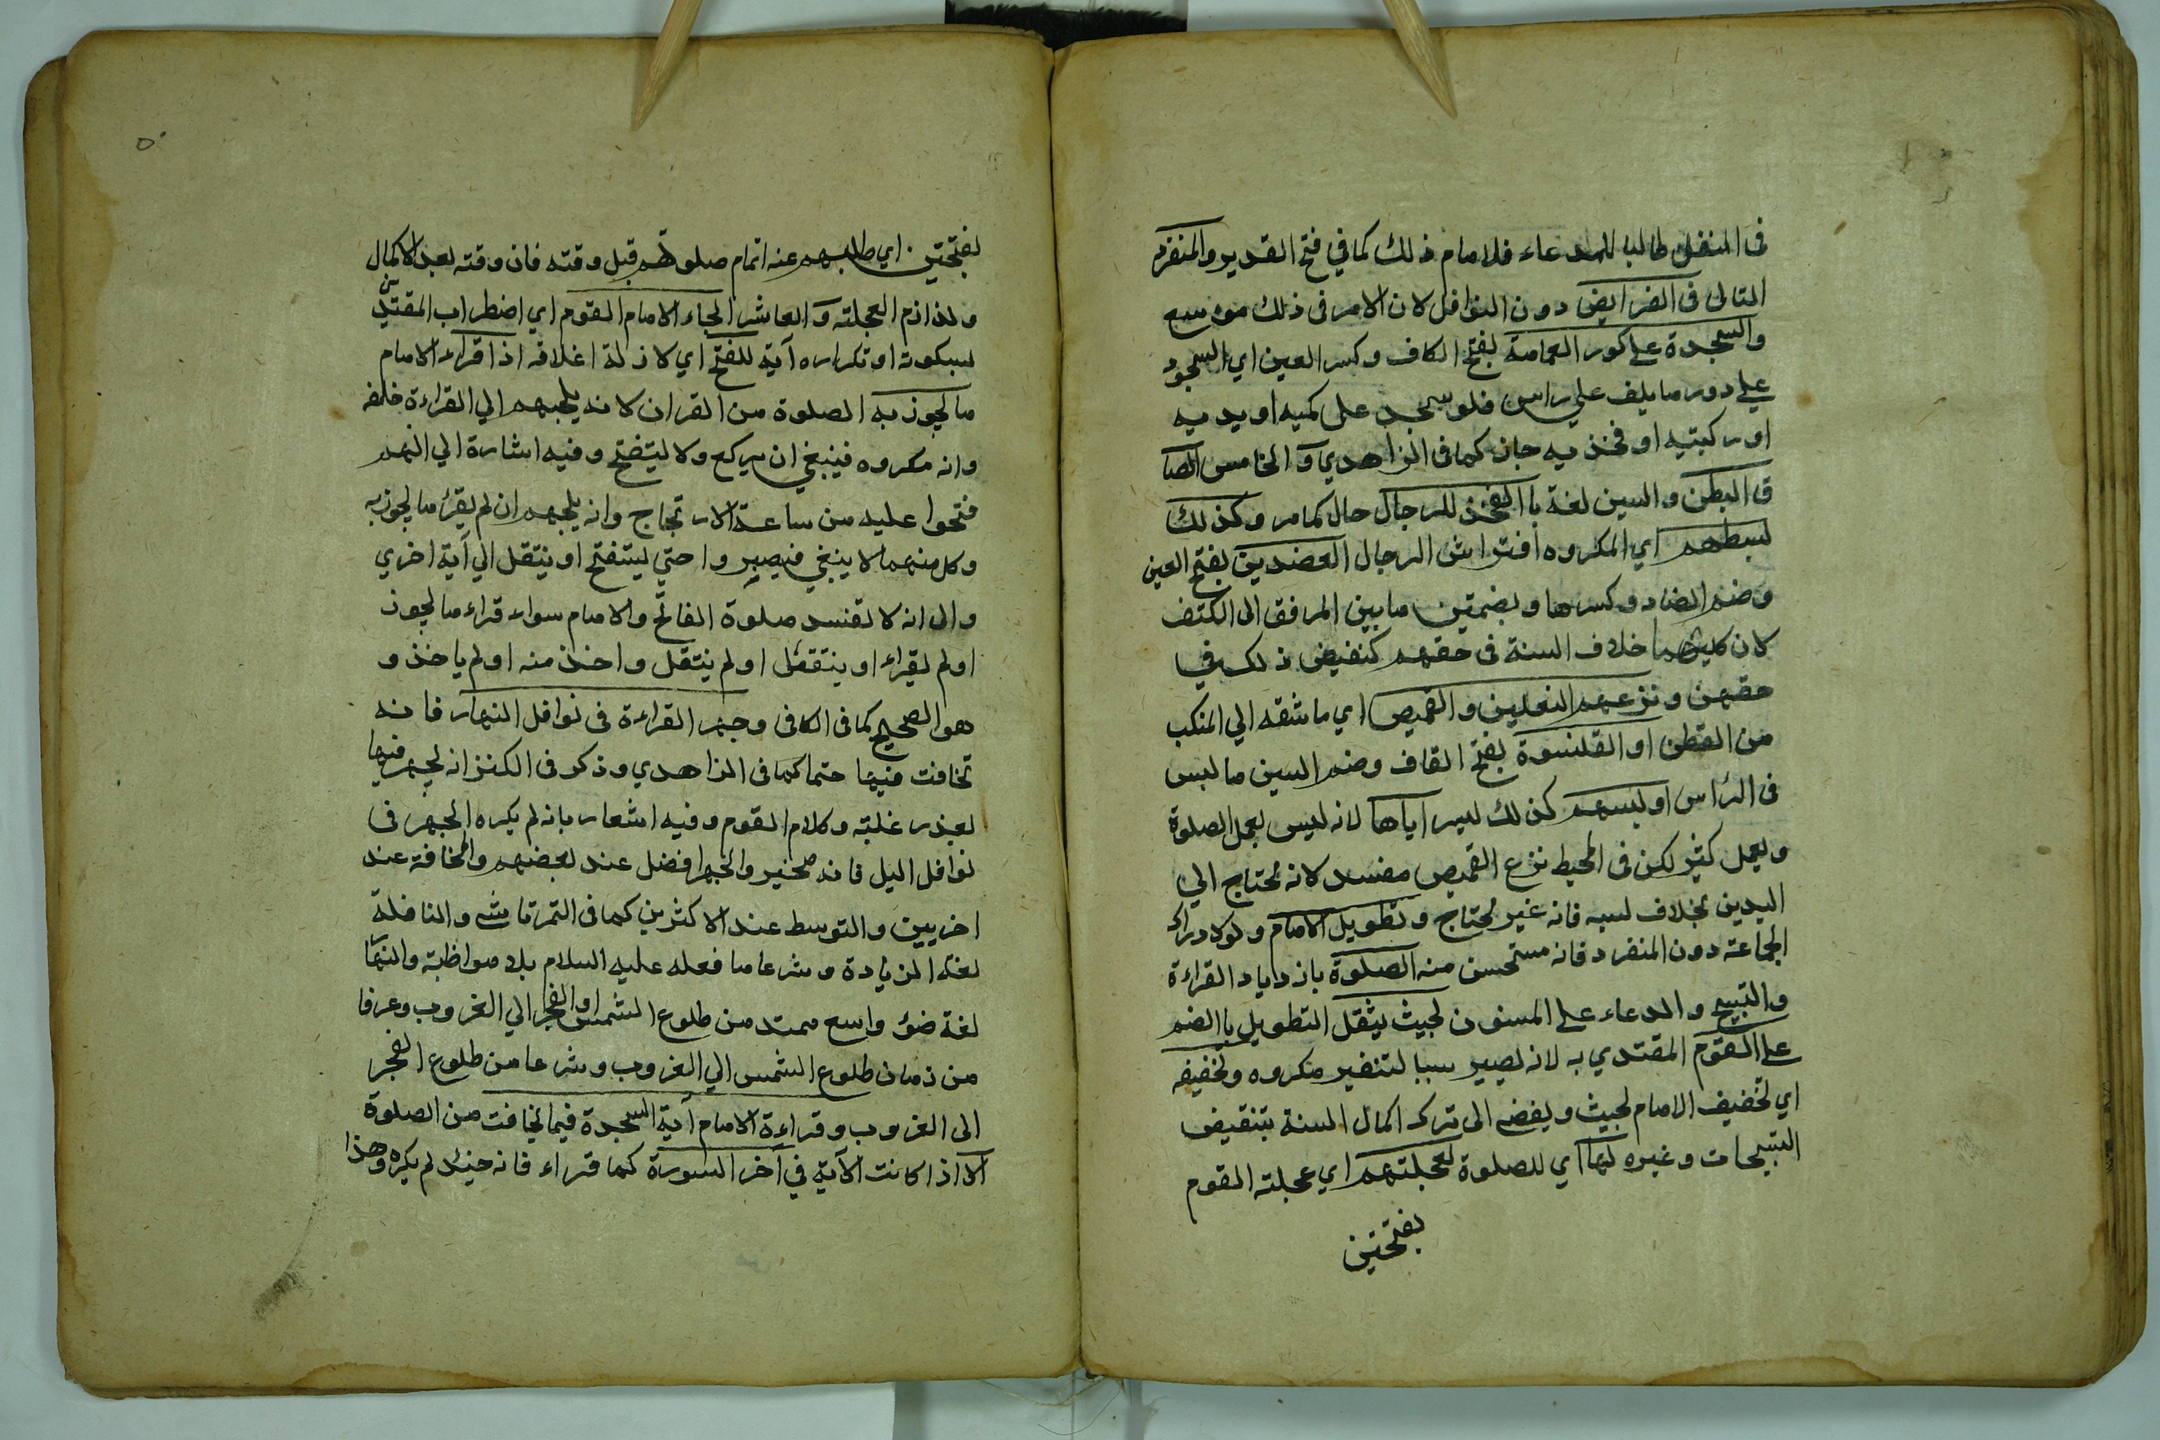 فى المنفل طالبا للدعاء فلامام ذلك كما في فتح القدير والمنفرد
التالى فى الفرايض دون النوافل لان الامر فى ذلك موسع
والسجدة على كور العمامة بفتح الكاف وكسر العين اي السجود
علي دور ما يلف علي راس فلو سجد على كميه او يديه
او ركبتيه او فخذيه جاز كما فى الزاهدي و الخامس الصا
ق البطن والسين لغة با الفخذ للرجال حال كما مر وكذلك
بسطهم اي المكروه افتراش الرجال العضدين بفتح العين
وضم الضاد وكسرها وبضمتين ما بين المرفق الى الكتف
لان كليهما خلاف السنة فى حقهم كنقيض ذلك في
حقهن ونزعهم النعلين و القميص اي ما شقه الي المنكب
من القطن او القلنسوة بفتح القاف وضم السين ما لبس
فى الرأس او لبسهم كذلك ليسر اياها لانه ليس بعمل الصلوة
وبعمل كثير لكن فى المحيط نزع القميص مفسد لانه يحتاج الي
اليدين بخلاف لبسه فانه غير محتاج وتطويل الامام ولو لادراك
الجماعة دون المنفرد فانه مستحسن منه الصلوة بازدياد القراءة
والتبيح والدعاء على المسنون بحيث يثقل التطويل با الضم
على القوم المقتدي به لانه يصير سببا لتنفير مكروه وتخفيفه
اي تخفيف الامام بحيث ويفضى الى ترك اكمال السنة بتنقيض
التبيحات وغيره لها اي للصلوة لعجلتهم اي عجلته القوم
بفتحتين
بفتحتين . اي طلبهم عنه اتمام صلوتهم قبل وقته فان وقته بعد الاكمال
ولذا ذم العجلته و العاشر الجاء الامام القوم اي اضطراب المقتدين
بسكوته او تكراره آية للفتح اي لازلة اغلاقه اذا قراء الامام
ما يجوز به الصلوة من القران لانه يلجبهم الي القراءة خلفه
وانه مكروه فينبغي ان يركع ولا ليتفتح وفيه اشارة الي انهم
فتحوا عليه من ساعة الارتجاج وانه يلجبهم ان لم يقرء ما يجوز به
وكل منهما لا ينبغي فيصير وا حتي يستفتح او ينتقل الي آية اخري
والى انه لا تفسد صلوة الفاتح والامام سواء قراء ما يجوز
او لم يقراء او ينتقل او لم ينتقل واخذ منه او لم ياخذ و
هو الصحيح كما فى الكافى وجهر القراءة فى نوافل النهار فانه
تخافت فيها حتما كما فى الزاهدي وذكر فى الكنز انه يجهر فيها
بعذر غلبته وكلام القوم وفيه اشعار بانه لم يكره الجهر فى
نوافل اليل فانه مخير والجهر افضل عند بعضهم والمخافة عند
اخريين والتوسط عند الاكثرين كما فى التمرتاشى والنافلة
لغة الزيادة وشرعا ما فعله عليه السلام بلا مواظبة والنها
لغة ضوء واسع ممتد من طلوع الشمس او الفجر الي الغروب وعرفا
من زمان طلوع الشمس الي الغروب وشرعا من طلوع الفجر
الى الغروب وقراءة الامام آية السجدة فيما يخافت من الصلوة
الا اذا كانت الآية في آخر السورة كما قراء فانه حينئذ لم يكره وهذا